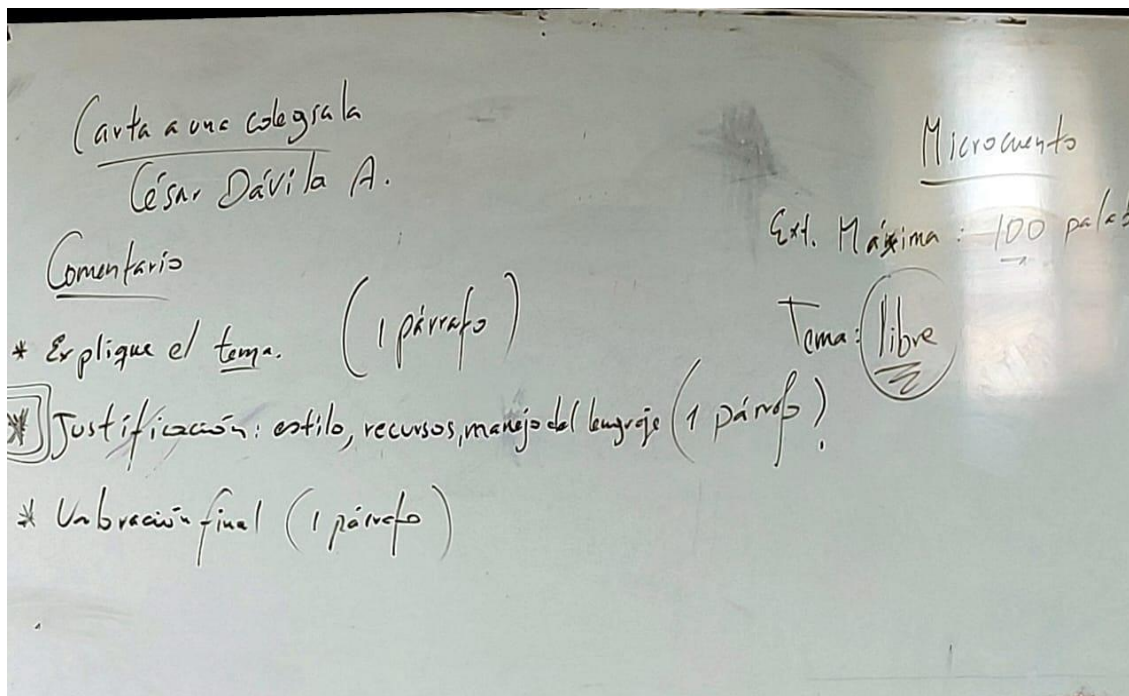 Carta a una colegiala
César Dávila A.
Comentario
* Explique el tema. (1 párrafo)
* Justificación: estilo, recursos, manejo del lenguaje (1 párrafo).
* Valoración final (1 párrafo)
Microcuento
Ext. Máxima: 100 palab
Tema: libre